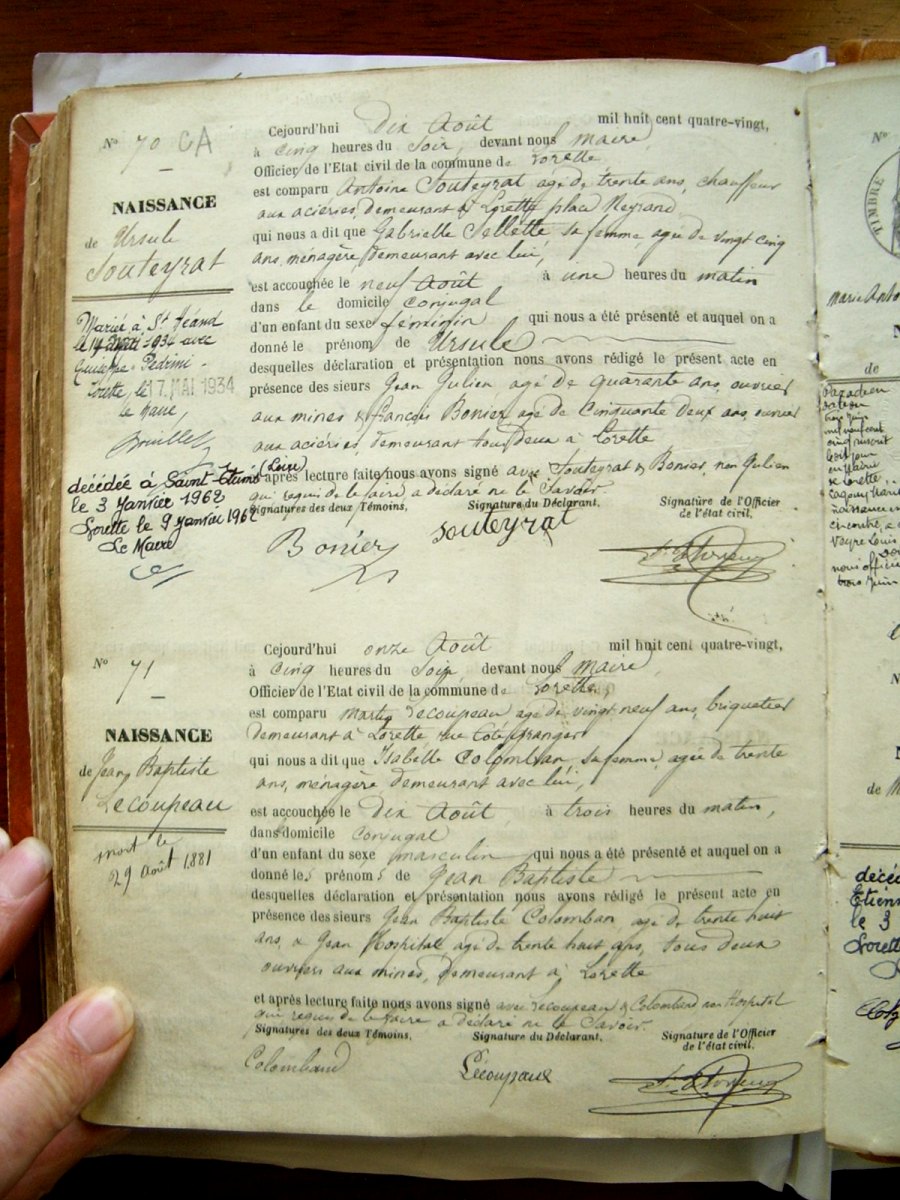 N° 70 CA
NAISSANCE
de Ursule
Souteyrat
Mariée à St Héand
le 14 1934 avec
Guiseppe Pedrini.
Lorette, le 17 MAI 1934
le Maire,
décédée à Saint Etienne (Loire)
le 3 Janvier 1962
Lorette le 9 janvier 1962
Le Maire
Cejourd'hui dix Août mil huit cent quatre-vingt,
à cinq heures du Soir, devant nous maire
Officier de l'Etat civil de la commune de Lorette,
est comparu Antoine Souteyrat âgé de trente ans, chauffeur
aux acièries, demeurant à Lorette place Neyrand
qui nous a dit que Gabrielle Sellette sa femme, agée de vingt cinq
ans, ménagère demeurant avec lui,
est accouchée le neuf Août à une heures du matin
dans le domicile conjugal
d'un enfant du sexe féminin qui nous a été présenté et auquel on a
donné le prénom de Ursule
desquelles déclaration et présentation nous avons rédigé le présent acte en
présence des sieurs Jean Julien agé de quarante ans, ouvrier
aux mines & françois Bonier agé de Cinquante deux ans, ouvrier
aux acièries, demeurant tous deux à Lorette
et après lecture faite nous avons signé avec Souteyrat & Bonier, non Julien
qui requis de le faire, a déclaré ne le Savoir.
Signatures des deux Témoins, Signature du Déclarant, Signature de l'Officier
de l'état civil.
Bonier Souteyrat
N° 71
NAISSANCE
de Jean Baptiste
Lecoupeau
mort le
29 août 1881
Cejourd'hui onze Août mil huit cent quatre-vingt,
à cinq heures du Soir, devant nous maire
Officier de l'Etat civil de la commune de Lorette,
est comparu Martin Lecoupeau agé de vingt neuf ans, briquetier
demeurant à Lorette rue Côte granger
qui nous a dit que Isabelle Colomban sa femme, agée de trente
ans, ménagère demeurant avec lui,
est accouchée le dix Août, à trois heures du matin,
dans domicile conjugal
d'un enfant du sexe masculin qui nous a été présenté et auquel on a
donné les prénoms de Jean Baptiste
desquelles déclaration et présentation nous avons rédigé le présent acte en
présence des sieurs Jean Baptiste Colomban, agé de trente huit
ans, & Jean Hospital agé de trente huit ans, tous deux
ouvriers aux mines, demeurant à Lorette
et après lecture faite nous avons signé avec Lecoupeau & Colomband non Hospital
qui requis de le faire a déclaré ne le Savoir.
Signatures des deux Témoins, Signature du Déclarant, Signature de l'Officier
de l'état civil.
Colomband Lécoupaux
N°
TIMBRE
Marie Anto
N
de